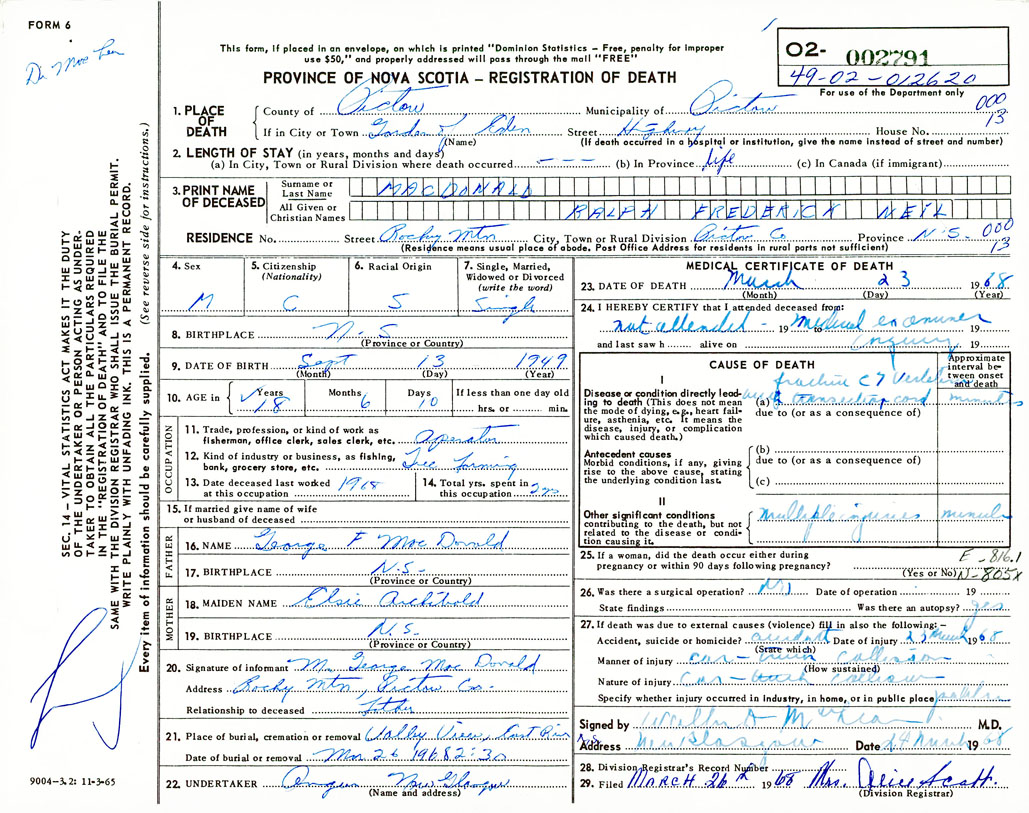 FORM 6
Dr. Mac Lean
This form, if placed in an envelope, on which is printed "Dominion Statistics – Free, penalty for improper
use $50," and properly addressed will pass through the mail "FREE"
PROVINCE OF NOVA SCOTIA – REGISTRATION OF DEATH
02- 002791
49-02-012620
For use of the Department only
000
13
1. PLACE OF DEATH
County of Pictou Municipality of Pictou
If in City or Town Garden of Eden Street Highway House No.
(Name) (If death occurred in a hospital or institution, give the name instead of street and number)
2. LENGTH OF STAY (in years, months and days)
(a) In City, Town or Rural Division where death occurred --- (b) In Province life (c) In Canada (if immigrant)
3. PRINT NAME OF DECEASED
Surname or Last Name MACDONALD
All Given or Christian Names RALPH FREDERICK NEIL
RESIDENCE No. Street Rocky Mtn City, Town or Rural Division Pictou Co Province N.S. 000
13
(Residence means usual place of abode. Post Office Address for residents in rural parts not sufficient)
4. Sex M
5. Citizenship (Nationality) C
6. Racial Origin S
7. Single, Married, Widowed or Divorced (write the word) Single
8. BIRTHPLACE N.S
(Province or Country)
9. DATE OF BIRTH Sept 13 1949
(Month) (Day) (Year)
10. AGE in Years 18 Months 6 Days 10 If less than one day old hrs. or min.
OCCUPATION
11. Trade, profession, or kind of work as
fisherman, office clerk, sales clerk, etc. Operator
12. Kind of industry or business, as fishing,
bank, grocery store, etc. Tree Farming
13. Date deceased last worked
at this occupation 1968
14. Total yrs. spent in
this occupation 2 yrs
15. If married give name of wife
or husband of deceased
FATHER
16. NAME George F Mac Donald
17. BIRTHPLACE N.S.
(Province or Country)
MOTHER
18. MAIDEN NAME Elsie Archibald
19. BIRTHPLACE N.S.
(Province or Country)
20. Signature of informant M. George Mac Donald
Address Rocky Mtn, Pictou Co.
Relationship to deceased father
21. Place of burial, cremation or removal Valley View,
Date of burial or removal Mar 26 1968 2:30
22. UNDERTAKER New Glasgow
(Name and address)
MEDICAL CERTIFICATE OF DEATH
23. DATE OF DEATH March 23 1968
(Month) (Day) (Year)
24. I HEREBY CERTIFY that I attended deceased from:
not attended - 19 to medical examiner 19
and last saw h alive on inquiry 19
CAUSE OF DEATH
Approximate interval between onset and death
I
Disease or condition directly leading to death (This does not mean the mode of dying, e.g., heart failure, asthenia, etc. It means the disease, injury, or complication which caused death.)
fracture C7
(a) transecting cord minutes
due to (or as a consequence of)
Antecedent causes
Morbid conditions, if any, giving rise to the above cause, stating the underlying condition last.
(b)
due to (or as a consequence of)
(c)
II
Other significant conditions
contributing to the death, but not related to the disease or condition causing it.
multiple injuries minutes
25. If a woman, did the death occur either during
pregnancy or within 90 days following pregnancy?
(Yes or No)
E-816.1
N-805x
26. Was there a surgical operation? no Date of operation 19
State findings Was there an autopsy? yes
27. If death was due to external causes (violence) fill in also the following:–
Accident, suicide or homicide? accident Date of injury 23 March 1968
(State which)
Manner of injury car-
(How sustained)
Nature of injury car-
Specify whether injury occurred in industry, in home, or in public place public
Signed by M.D.
Address New Glasgow Date 24 March 1968
28. Division Registrar's Record Number
29. Filed MARCH 26th 1968 Mrs. Alice Scott
(Division Registrar)
SEC. 14 – VITAL STATISTICS ACT MAKES IT THE DUTY
OF THE UNDERTAKER OR PERSON ACTING AS UNDER-
TAKER TO OBTAIN ALL THE PARTICULARS REQUIRED
IN THE "REGISTRATION OF DEATH" AND TO FILE THE
SAME WITH THE DIVISION REGISTRAR WHO SHALL ISSUE THE BURIAL PERMIT.
WRITE PLAINLY WITH UNFADING INK. THIS IS A PERMANENT RECORD.
Every item of information should be carefully supplied. (See reverse side for instructions.)
9004-3.2: 11-3-65